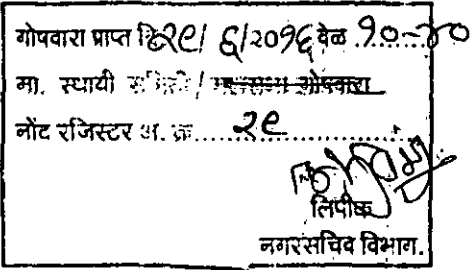 गोषवारा प्राप्त दि २९/६/२०१६ वेळ १०-४०
मा. स्थायी समिती / महासभा गोषवारा
नोंद रजिस्टर अ. क्र. २९
लिपीक
नगरसचिव विभाग.